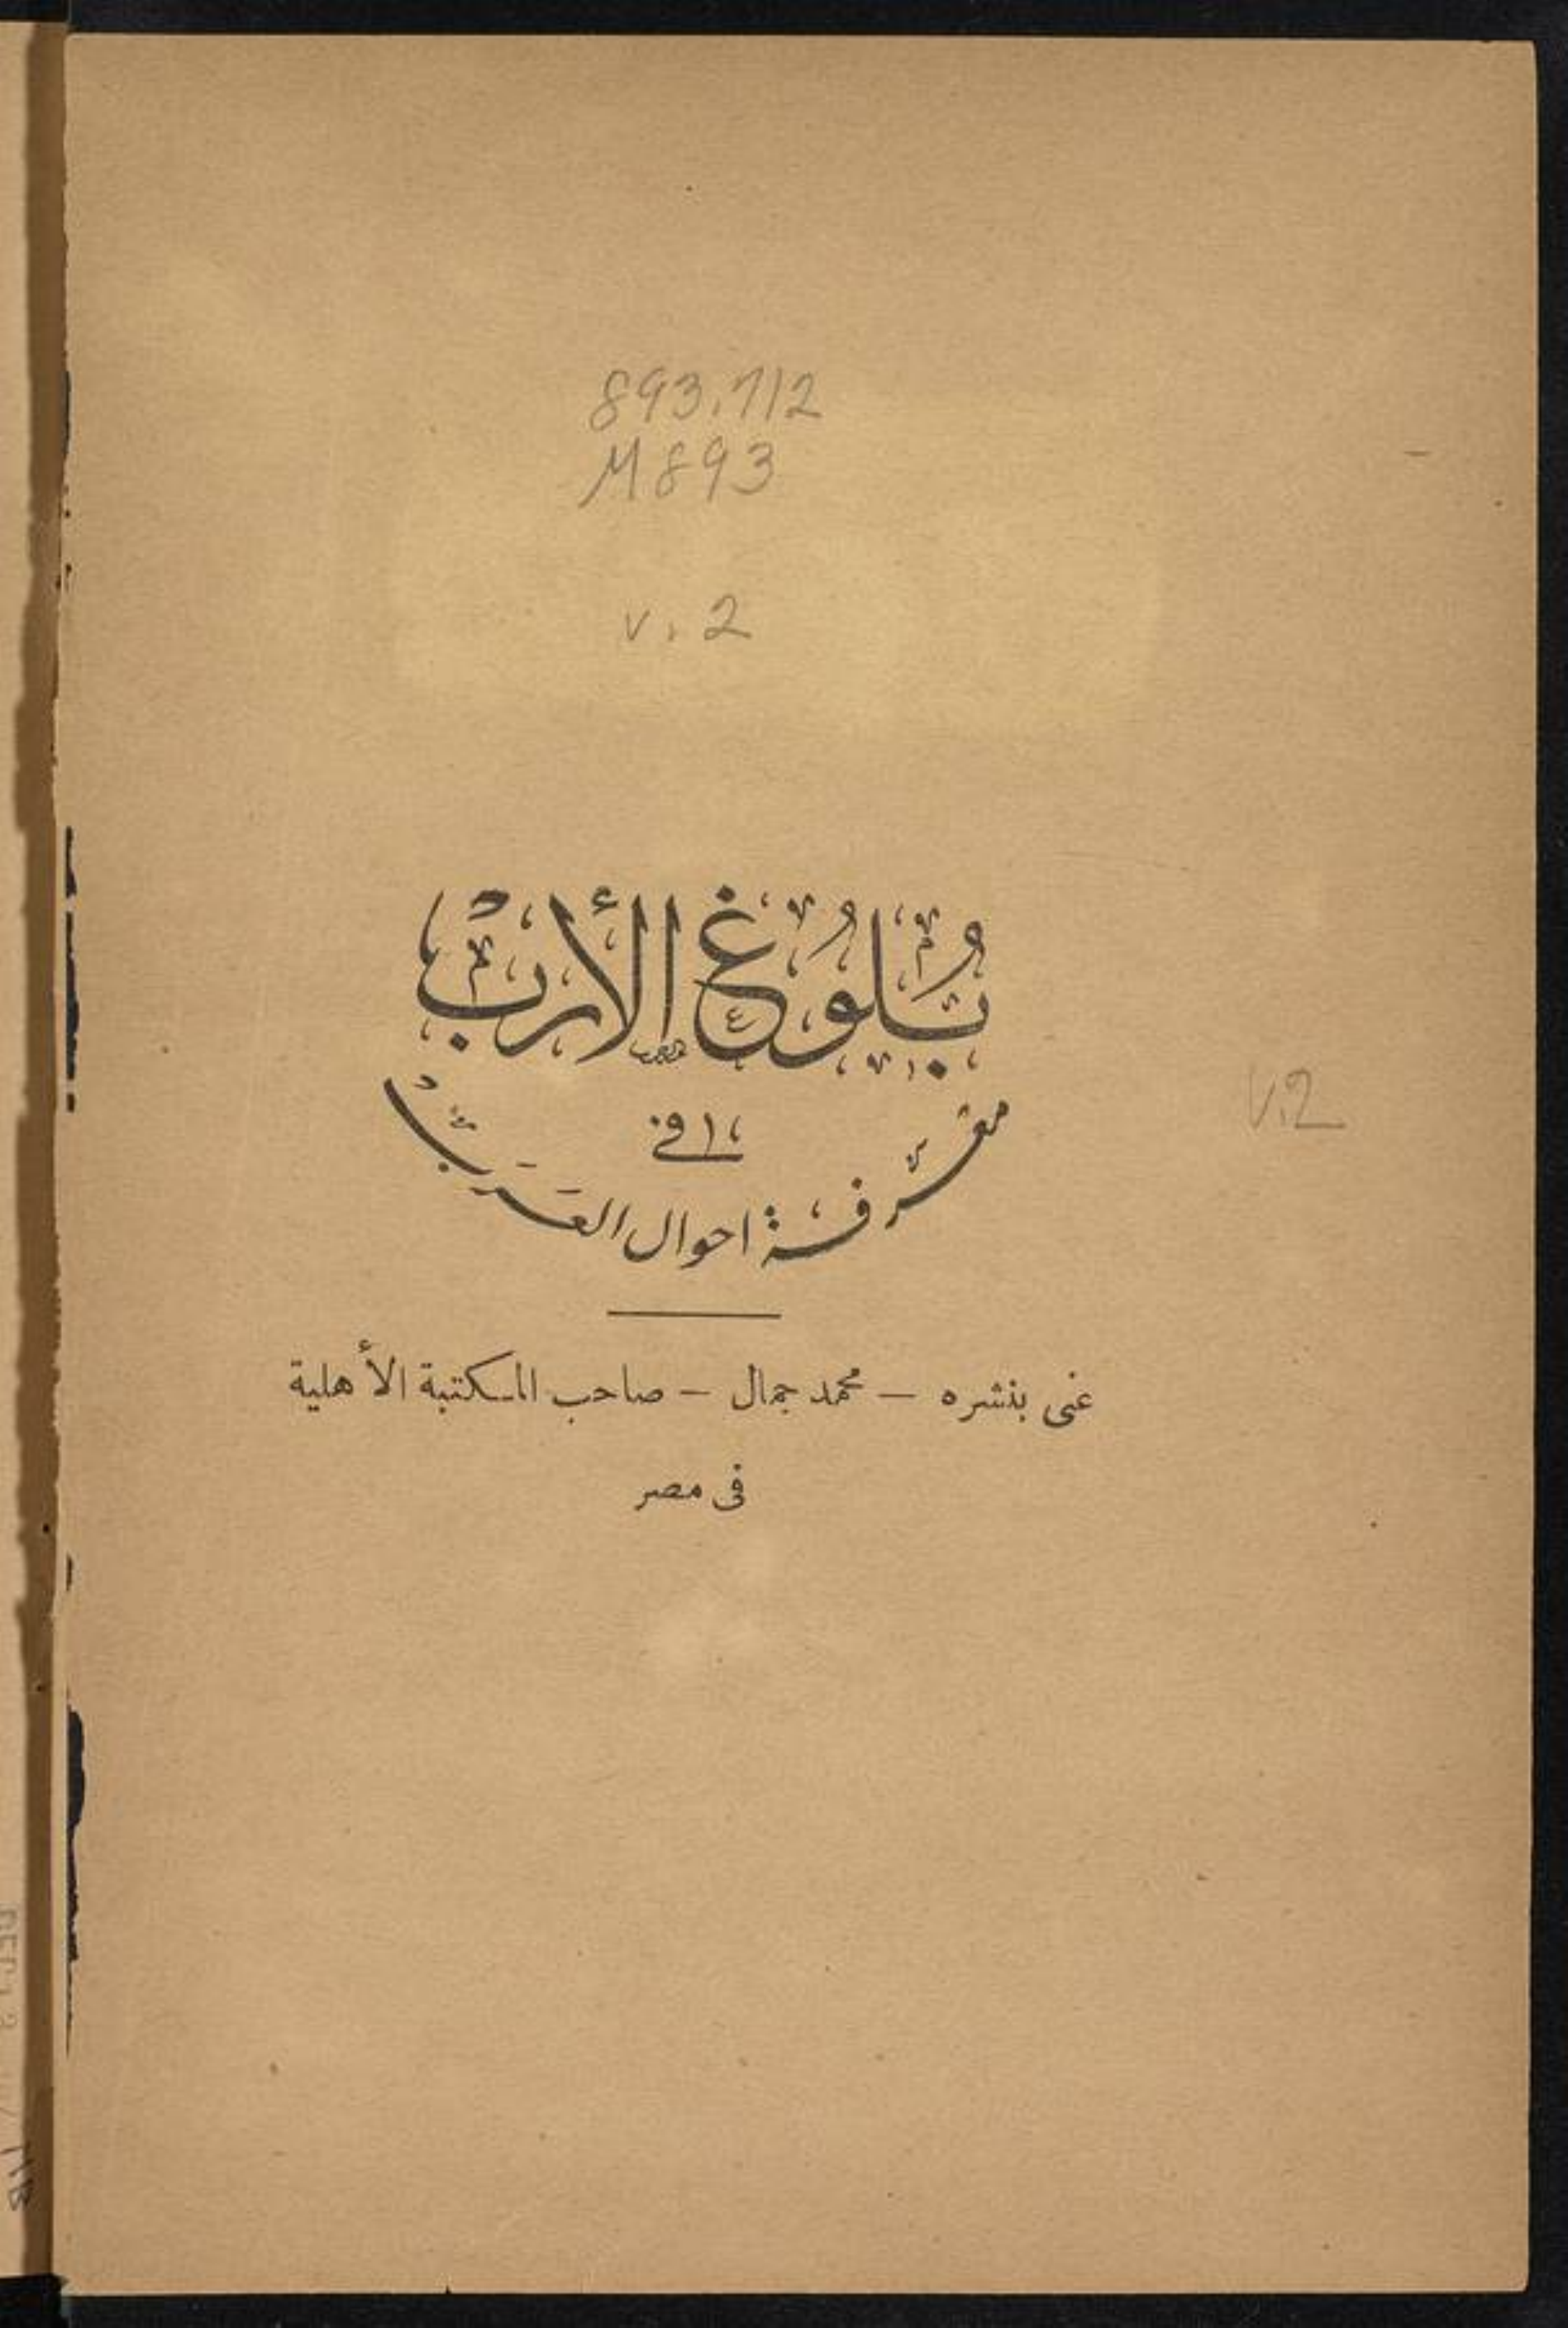 893.712
M893
v. 2
بُلُوغُ الأَرَبْ
في
معرفة احوال العَرَبْ
V.2
عنى بنشره – محمد جمال – صاحب المكتبة الأهلية
فى مصر